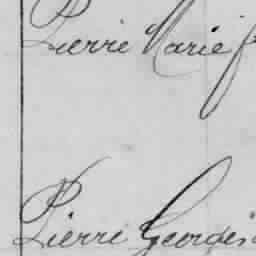 Pierre Marie
Pierre Georges